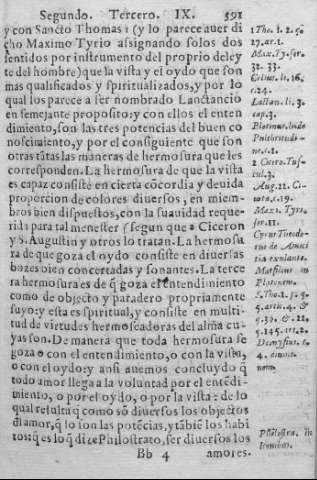 Segundo. Tercero. IX. 591
y con Sancto Thomas i (y lo parece auer di
cho Maximo Tyrio assignando solos dos
sentidos por instrumento del proprio deley
te del hombre) que la vista y el oydo que son
mas qualificados y spiritualizados, y por lo
qual los parece a ser nombrado Lanctancio
en semejante proposito: y con ellos el enten
dimiento, son las tres potencias del buen co
noscimiento, y por el consiguiente que son
otras tãtas las maneras de hermosura que les
corresponden. La hermosura de que la vista
es capaz consiste en cierta cõcordia y deuida
proporcion de colores diuersos, en miem-
bros bien dispuestos, con la suauidad reque-
rida para tal menester (segun que Ciceron
y S. Augustin y otros lo tratan. La hermosu
ra de que goza el oydo consiste en diuersas
bozes bien concertadas y sonantes. La terce
ra hermosura es de q̃ goza el entendimiento
como de objecto y paradero propriamente
suyo: y esta es spiritual, y consiste en multi-
tud de virtudes hermoseadoras del alma cu-
yas son. De manera que toda hermosura se
goza o con el entendimiento, o con la vista,
o con el oydo: y ansi auemos concluydo q̃
todo amor llega a la voluntad por el entẽdi-
miento, o por el oydo, o por la vista: de lo
qual resulta q̃ como sõ diuersos los objectos
dl amor, q̃ lo son las potẽcias, y tãbiẽ los habi
tos: q̃ es lo q̃ dize Philostrato, ser diuersos los
Bb 4 amores.
1 Tho. 1. 2. q̃
27. ar. 1.
Max. Ty. ser.
32. 33.
Celius. li. 16.
c. 24.
Lactan. li. 3.
cap. 3.
Plotinus. lib. de
Pulchritudi-
ne. c. 1.
2 Cicero. Tus-
cul. 3.
Aug. 22. Ci-
uita. c. 19.
Maxi. Tyri.
ser. 11.
Cyrus Theodo-
rus de Amici
tia exulante.
Marsilius in
Plotinum.
S. Tho. 1. p. q.
5. artic. 4. &
q. 39. & 22.
q. 145. ar. 2.
Dionysius. c.
4. diuin.
nom.
Philostra. in